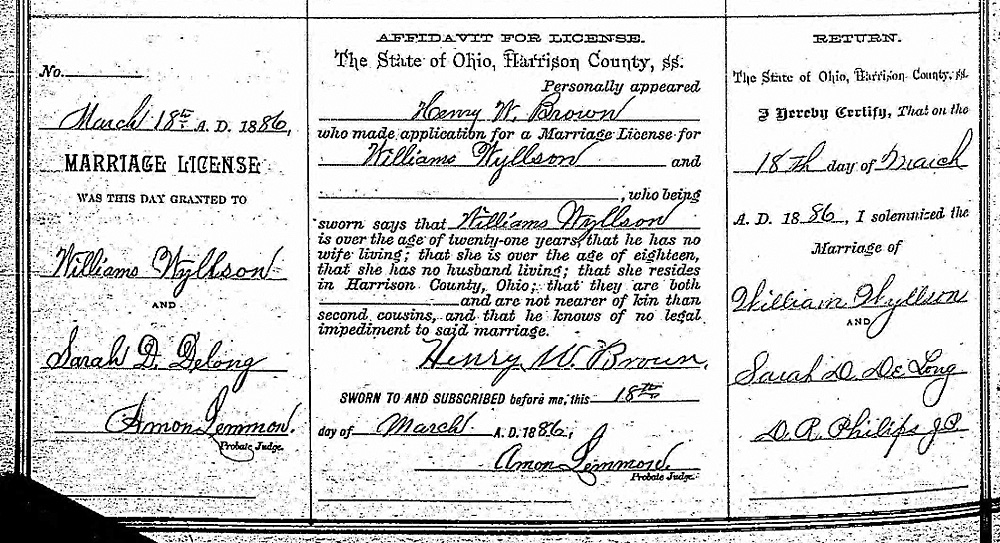 No.
March 18th A. D. 1886,
MARRIAGE LICENSE
WAS THIS DAY GRANTED TO
Williams Wyllson
AND
Sarah D. Delong
Amon Lemmon.
Probate Judge.
AFFIDAVIT FOR LICENSE.
The State of Ohio, Harrison County, ss.
Personally appeared
Henry W. Brown
who made application for a Marriage License for
Williams Wyllson and
, who being
sworn says that Williams Wyllson
is over the age of twenty-one years, that he has no
wife living; that she is over the age of eighteen,
that she has no husband living; that she resides
in Harrison County, Ohio; that they are both
and are not nearer of kin than
second cousins, and that he knows of no legal
impediment to said marriage.
Henry W. Brown.
SWORN TO AND SUBSCRIBED before me, this 18th
day of March A. D. 1886,
Amon Lemmon.
Probate Judge.
RETURN.
The State of Ohio, Harrison County, ss.
I Hereby Certify, That on the
18th day of March
A. D. 1886, I solemnized the
Marriage of
William Wyllson
AND
Sarah D. De Long
D. R. Philips J P